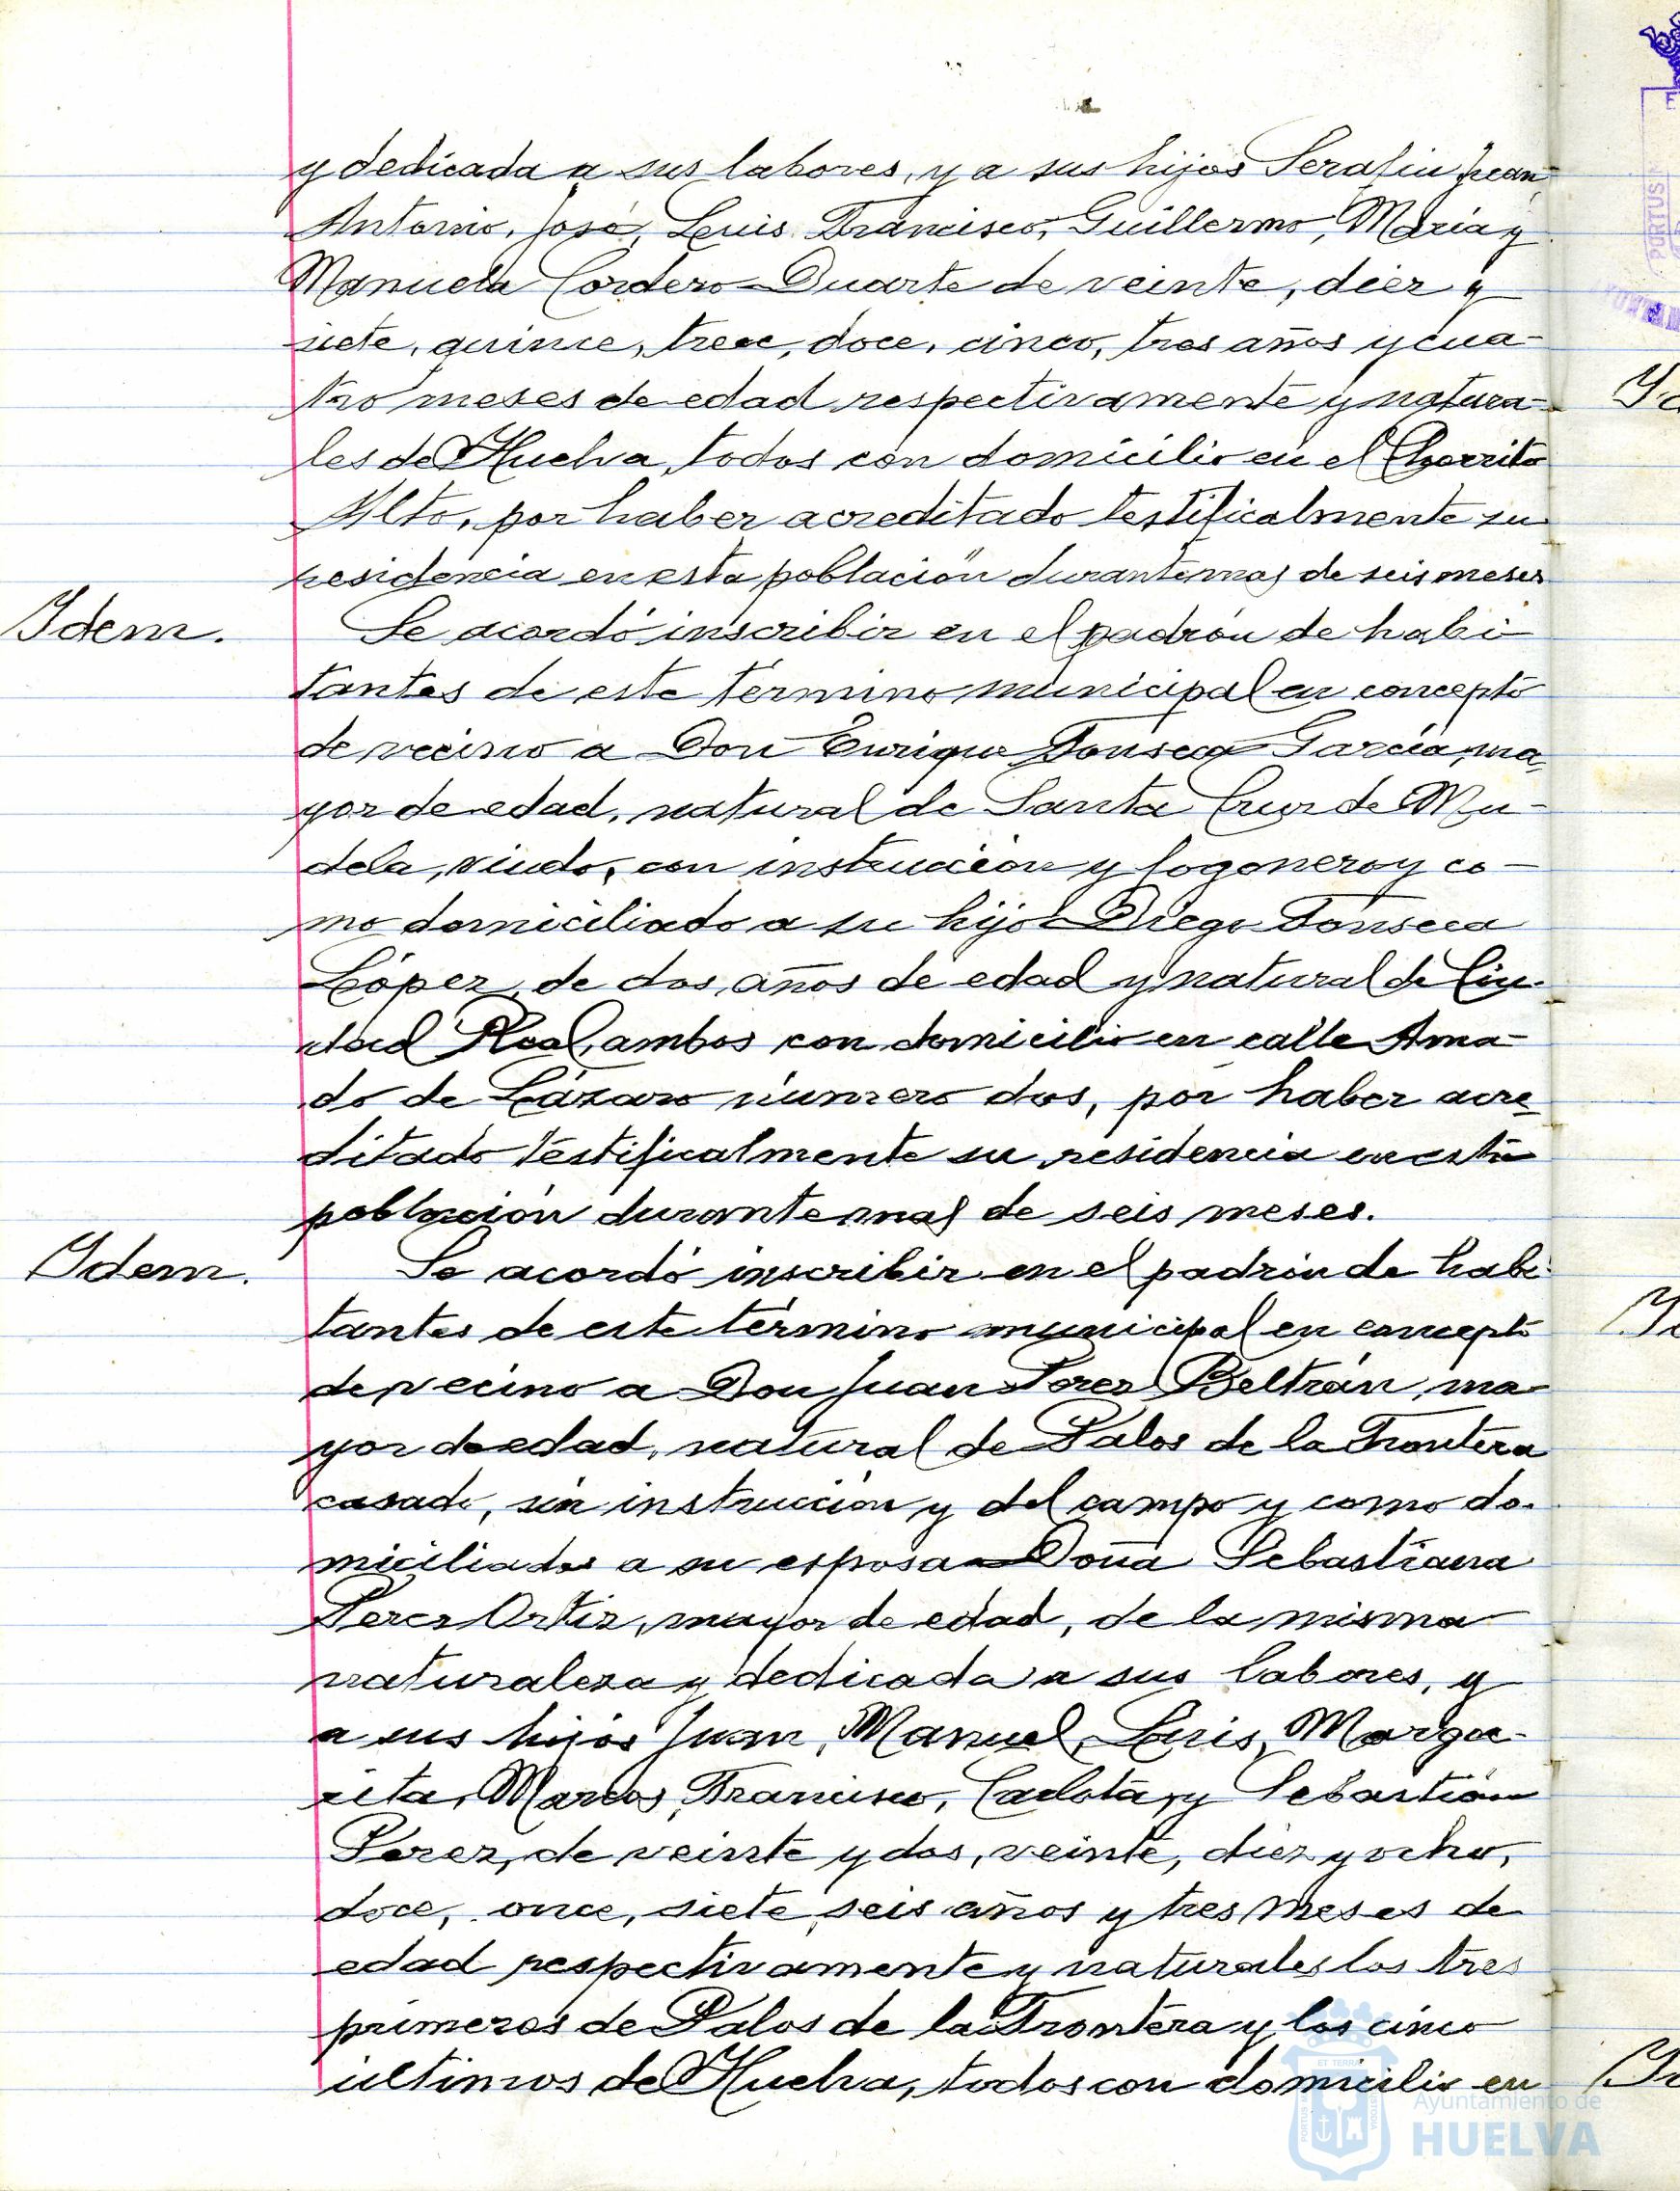 y dedicada a sus labores, y a sus hijos Serafin Juan
Antonio, José, Luis Francisco, Guillermo, Maria y
Manuela Cordero Duarte de veinte, diez y
siete, quince, trece, doce, cinco, tres años y cua-
tro meses de edad respectivamente y natura-
les de Huelva, todos con domicilio en el Chorrito
Alto, por haber acreditado testificalmente su
residencia en esta población durante mas de seis meses
Idem.
Se acordó inscribir en el padrón de habi-
tantes de este término municipal en concepto
de vecino a Don Enrique Fonseca García, ma-
yor de edad, natural de Santa Cruz de Mu-
dela, viudo, con instrucción y fogonero y co-
mo domiciliado a su hijo Diego Fonseca
López, de dos años de edad y natural de Ciu-
dad Real, ambos con domicilio en calle Ama-
do de Lázaro número dos, por haber acre-
ditado testificalmente su residencia en esta
población durante mas de seis meses.
Idem.
Se acordó inscribir en el padrón de habi-
tantes de este término municipal en concepto
de vecino a Don Juan Perez Beltrán, ma-
yor de edad, natural de Palos de la Frontera
casado, sin instrucción y del campo y como do-
miciliados a su esposa Doña Sebastiana
Perez Ortiz, mayor de edad, de la misma
naturaleza y dedicada a sus labores, y
a sus hijos Juan, Manuel, Luis, Marga-
rita, Marcos, Francisco, Carlota, y Sebastián
Perez, de veinte y dos, veinte, diez y ocho,
doce, once, siete, seis años y tres meses de
edad respectivamente y naturales los tres
primeros de Palos de la Frontera y los cinco
últimos de Huelva, todos con domicilio en
Ayuntamiento de
HUELVA